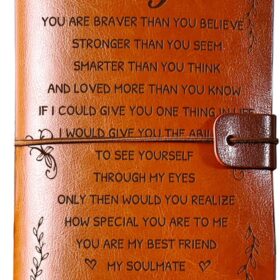 YOU ARE BRAVER THAN YOU BELIEVE
STRONGER THAN YOU SEEM
SMARTER THAN YOU THINK
AND LOVED MORE THAN YOU KNOW
IF I COULD GIVE YOU ONE THING IN LIFE
I WOULD GIVE YOU THE
TO SEE YOURSELF
THROUGH MY EYES
ONLY THEN WOULD YOU REALIZE
HOW SPECIAL YOU ARE TO ME
YOU ARE MY BEST FRIEND
♡ MY SOULMATE ♡